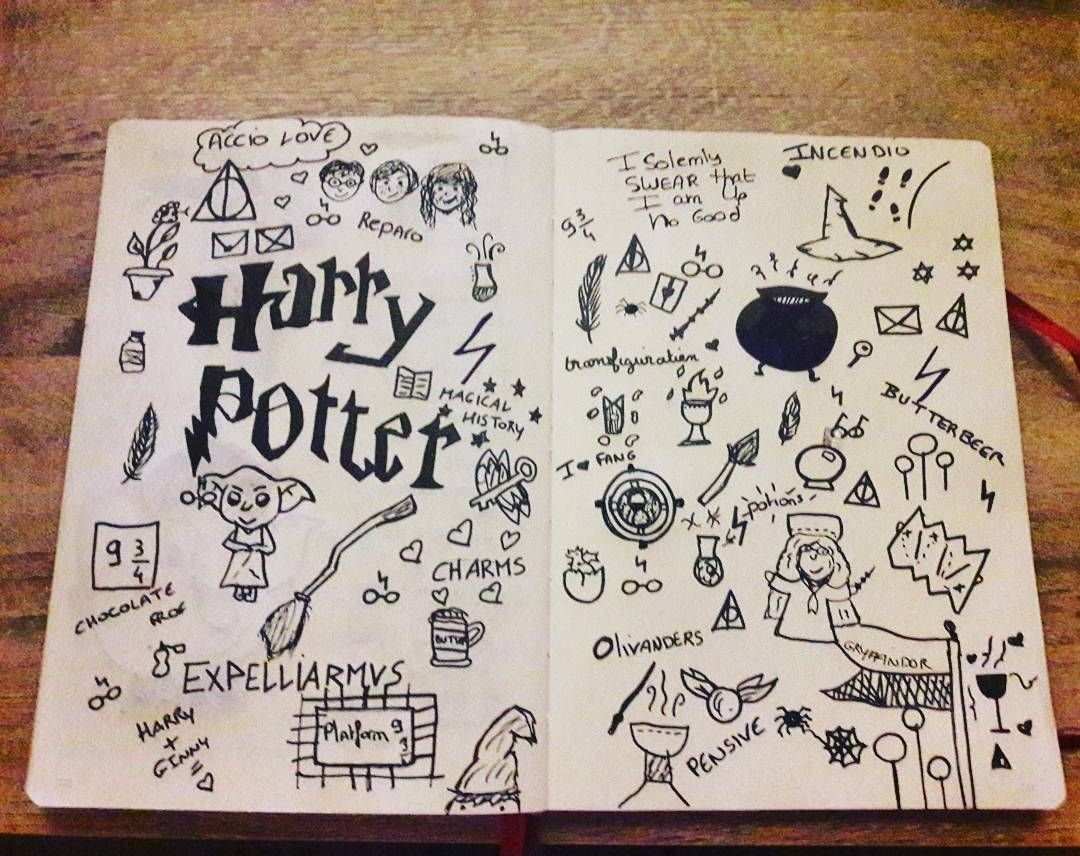 ACCIO LOVE
REPARO
Harry
Potter
MAGICAL
HISTORY
9 3/4
CHOCOLATE
FROG
CHARMS
BUTTER
EXPELLIARMUS
HARRY
+
GINNY
Platform 9
3
I Solemly
SWEAR that
I am up
no Good
INCENDIO
9 3/4
transfiguration
BUTTERBEER
I ♥ FANG
potions
Olivanders
GRYFFINDOR
PENSIVE